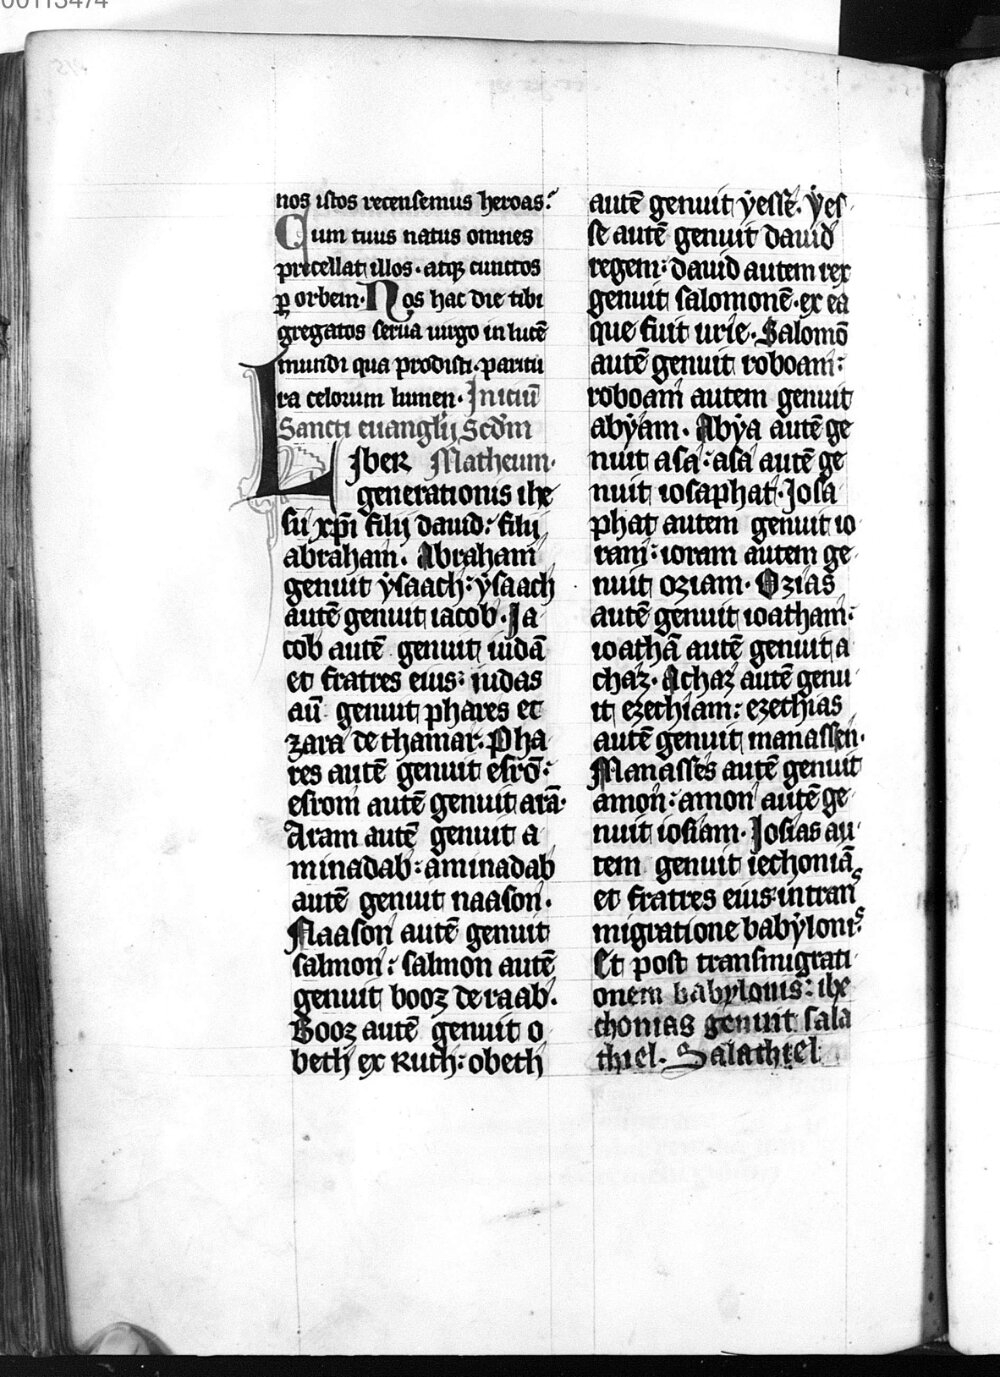 00113474
nos istos recensemus heroas.
Cum tuus natus omnes
precellat illos. atqꝫ cunctos
ꝑ orbem. Nos hac die tibi
gregatos serua uirgo in lucē
mundi qua prodisti. paritu
ra celorum lumen. Iniciū
Sancti euangelij Scdm
Liber Matheum.
generationis ihe
su xp̄i filij dauid: filij
abraham. Abraham
genuit ysaach: ysaach
autē genuit iacob. Ia
cob autē genuit iudā
et fratres eius: iudas
aū genuit phares et
zara de thamar. Pha
res autē genuit esrō:
esrom autē genuit arā.
Aram autē genuit a
minadab: aminadab
autē genuit naason.
Naason autē genuit
salmon: salmon autē
genuit booz de raab.
Booz autē genuit o
beth ex Ruth: obeth
autē genuit yesse. yes
se autē genuit dauid
regem: dauid autem rex
genuit salomonē. ex ea
que fuit urie. Salomō
autē genuit roboam:
roboam autem genuit
abyam. Abya autē ge
nuit asa: asa autē ge
nuit iosaphat. Iosa
phat autem genuit io
ram: ioram autem ge
nuit oziam. Ozias
autē genuit ioatham:
ioathā autē genuit a
chaz. Achaz autē genu
it ezechiam: ezechias
autē genuit manassen.
Manasses autē genuit
amon: amon autē ge
nuit iosiam. Iosias au
tem genuit iechoniā
et fratres eius in trans
migratione babylonis.
Et post transmigrati
onem babylonis: ihe
chonias genuit sala
thiel. Salathiel